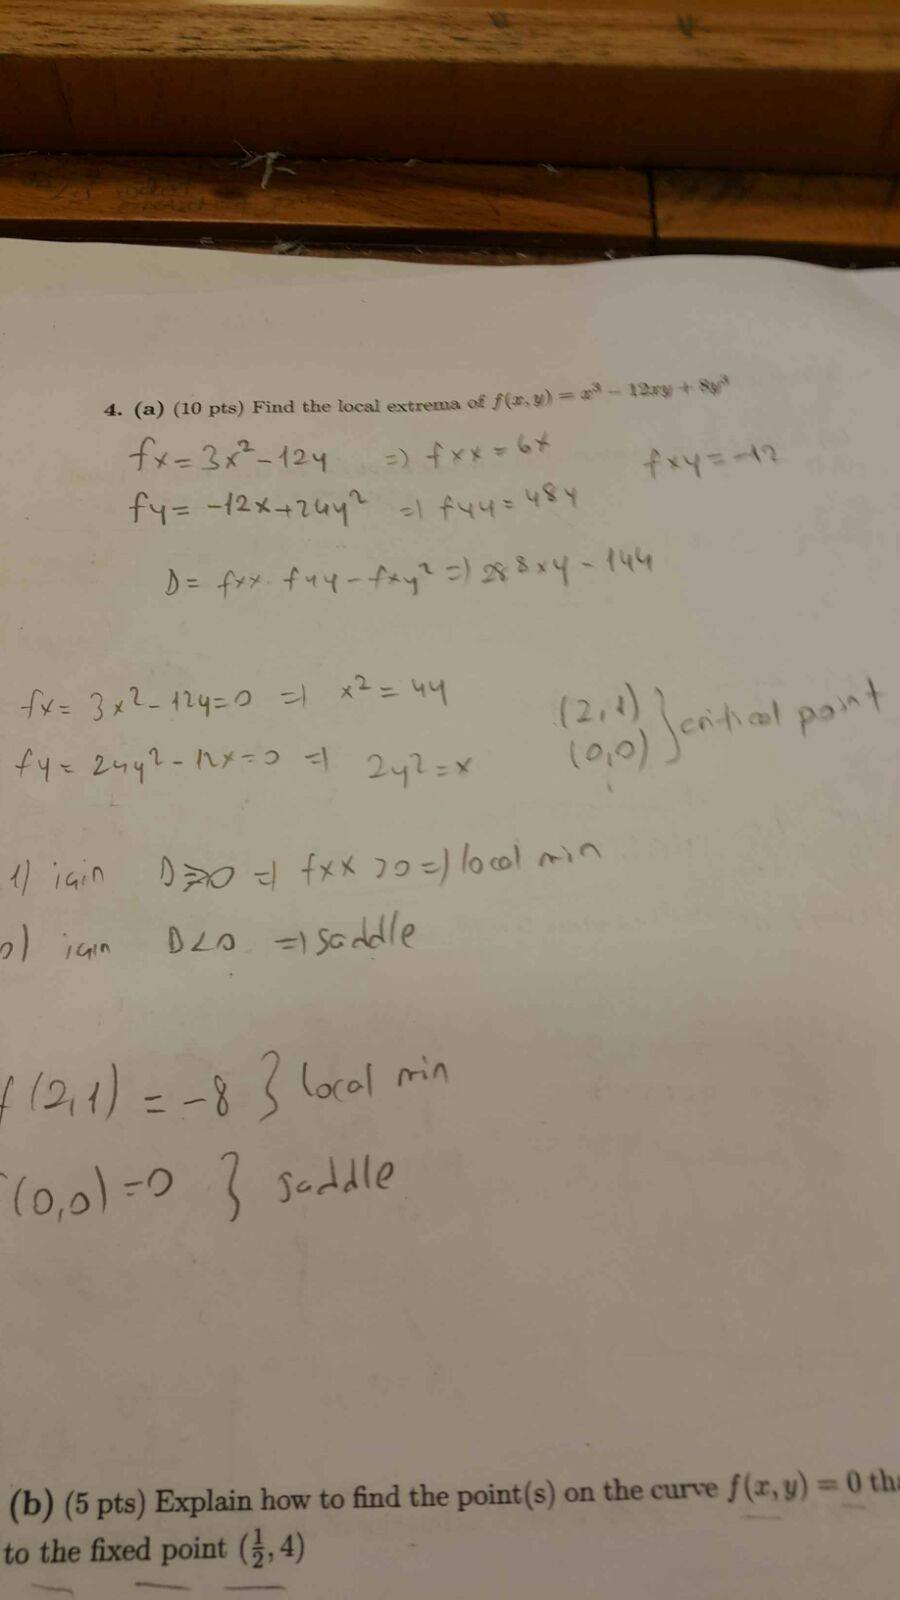 4. (a) (10 pts) Find the local extrema of f(x, y) = x³ − 12xy + 8y³
fx = 3x² - 12y => fxx = 6x fxy = -12
fy = -12x + 24y² => fyy = 48y
D = fxx . fyy - fxy² => 288xy - 144
fx = 3x² - 12y = 0 => x² = 4y (2,1) } critical point
fy = 24y² - 12x = 0 => 2y² = x (0,0)
1) için D>0 => fxx > 0 => local min
0) için D<0 => saddle
f(2,1) = -8 } local min
(0,0) = 0 } saddle
(b) (5 pts) Explain how to find the point(s) on the curve f(x, y) = 0 tha
to the fixed point (1/2, 4)